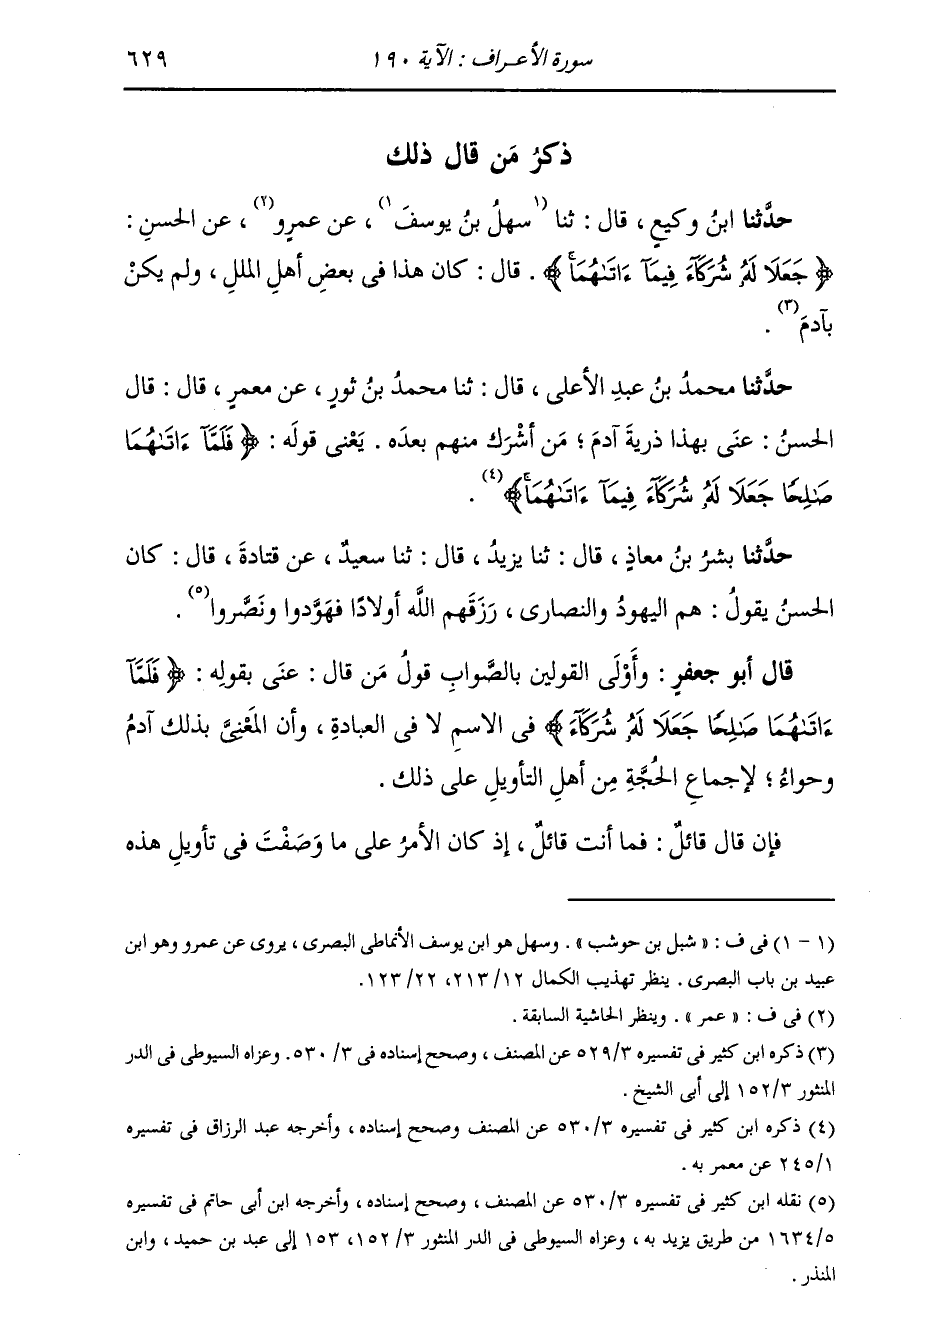 سورة الأعراف : الآية ١٩٠ ٦٢٩
ذكرُ مَن قال ذلك
حدَّثنا ابنُ وكيعٍ ، قال : ثنا (١ سهلُ بنُ يوسفَ ١) ، عن عمرٍو (٢) ، عن الحسنِ :
﴿ جَعَلَا لَهُۥ شُرَكَآءَ فِيمَآ ءَاتَىٰهُمَاۚ ﴾ . قال : كان هذا فى بعضِ أهلِ المللِ ، ولم يكنْ
بآدمَ (٣) .
حدَّثنا محمدُ بنُ عبدِ الأعلى ، قال : ثنا محمدُ بنُ ثورٍ ، عن معمرٍ ، قال : قال
الحسنُ : عنَى بهذا ذريةَ آدمَ ؛ مَن أشْرَك منهم بعدَه . يَعْنى قولَه : ﴿ فَلَمَّآ ءَاتَىٰهُمَا
صَٰلِحًا جَعَلَا لَهُۥ شُرَكَآءَ فِيمَآ ءَاتَىٰهُمَاۚ ﴾ (٤) .
حدَّثنا بشرُ بنُ معاذٍ ، قال : ثنا يزيدُ ، قال : ثنا سعيدٌ ، عن قتادةَ ، قال : كان
الحسنُ يقولُ : هم اليهودُ والنصارى ، رَزَقَهم اللَّه أولادًا فهَوَّدوا ونَصَّروا (٥) .
قال أبو جعفرٍ : وأَوْلَى القولين بالصَّوابِ قولُ مَن قال : عنَى بقولِه : ﴿ فَلَمَّآ
ءَاتَىٰهُمَا صَٰلِحًا جَعَلَا لَهُۥ شُرَكَآءَ ﴾ فى الاسمِ لا فى العبادةِ ، وأن المَعْنىَّ بذلك آدمُ
وحواءُ ؛ لإجماعِ الحُجَّةِ مِن أهلِ التأويلِ على ذلك .
فإن قال قائلٌ : فما أنت قائلٌ ، إذ كان الأمرُ على ما وَصَفْتَ فى تأويلِ هذه
(١ - ١) فى ف : « شبل بن حوشب » . وسهل هو ابن يوسف الأنماطى البصرى ، يروى عن عمرو وهو ابن
عبيد بن باب البصرى . ينظر تهذيب الكمال ٢١٣/١٢، ١٢٣/٢٢.
(٢) فى ف : « عمر » . وينظر الحاشية السابقة .
(٣) ذكره ابن كثير فى تفسيره ٥٢٩/٣ عن المصنف ، وصحح إسناده فى ٥٣٠/٣. وعزاه السيوطى فى الدر
المنثور ١٥٢/٣ إلى أبى الشيخ .
(٤) ذكره ابن كثير فى تفسيره ٥٣٠/٣ عن المصنف وصحح إسناده ، وأخرجه عبد الرزاق فى تفسيره
٢٤٥/١ عن معمر به .
(٥) نقله ابن كثير فى تفسيره ٥٣٠/٣ عن المصنف ، وصحح إسناده ، وأخرجه ابن أبى حاتم فى تفسيره
١٦٣٤/٥ من طريق يزيد به ، وعزاه السيوطى فى الدر المنثور ١٥٢/٣، ١٥٣ إلى عبد بن حميد ، وابن
المنذر .